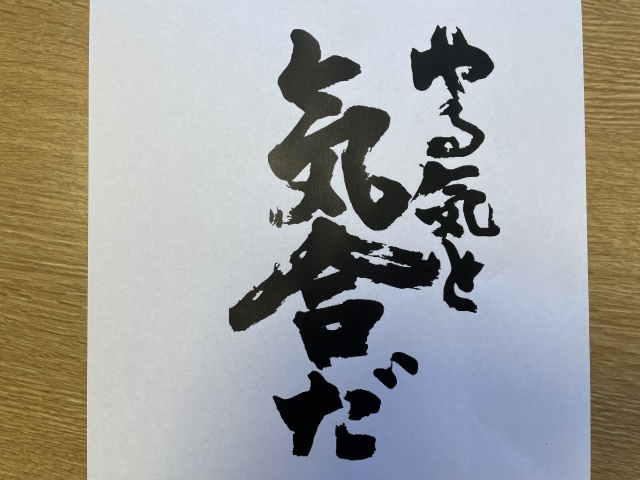 やる気と
気合だ